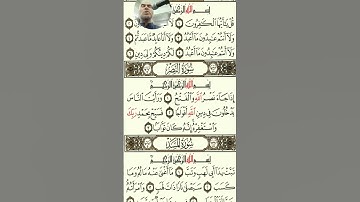 بِسْمِ اللَّهِ الرَّحْمَٰنِ
قُلْ يَٰٓأَيُّهَا ٱلْكَٰفِرُونَ ١ لَآ
وَلَآ أَنتُمْ عَٰبِدُونَ مَآ أَعْبُدُ ٣ وَلَآ أَنَا۠ عَابِدٌ مَّا عَبَدتُّمْ ٤
وَلَآ أَنتُمْ عَٰبِدُونَ مَآ أَعْبُدُ ٥ لَكُمْ دِينُكُمْ وَلِيَ دِينِ ٦
سُورَةُ النَّصْرِ
بِسْمِ اللَّهِ الرَّحْمَٰنِ الرَّحِيمِ
إِذَا جَآءَ نَصْرُ ٱللَّهِ وَٱلْفَتْحُ ١ وَرَأَيْتَ ٱلنَّاسَ
يَدْخُلُونَ فِى دِينِ ٱللَّهِ أَفْوَاجًا ٢ فَسَبِّحْ بِحَمْدِ رَبِّكَ
وَٱسْتَغْفِرْهُ إِنَّهُۥ كَانَ تَوَّابًۢا ٣
سُورَةُ المَسَدِ
بِسْمِ اللَّهِ الرَّحْمَٰنِ الرَّحِيمِ
تَبَّتْ يَدَآ أَبِى لَهَبٍ وَتَبَّ ١ مَآ أَغْنَىٰ عَنْهُ مَالُهُۥ وَمَا
كَسَبَ ٢ سَيَصْلَىٰ نَارًا ذَاتَ لَهَبٍ ٣ وَٱمْرَأَتُهُۥ